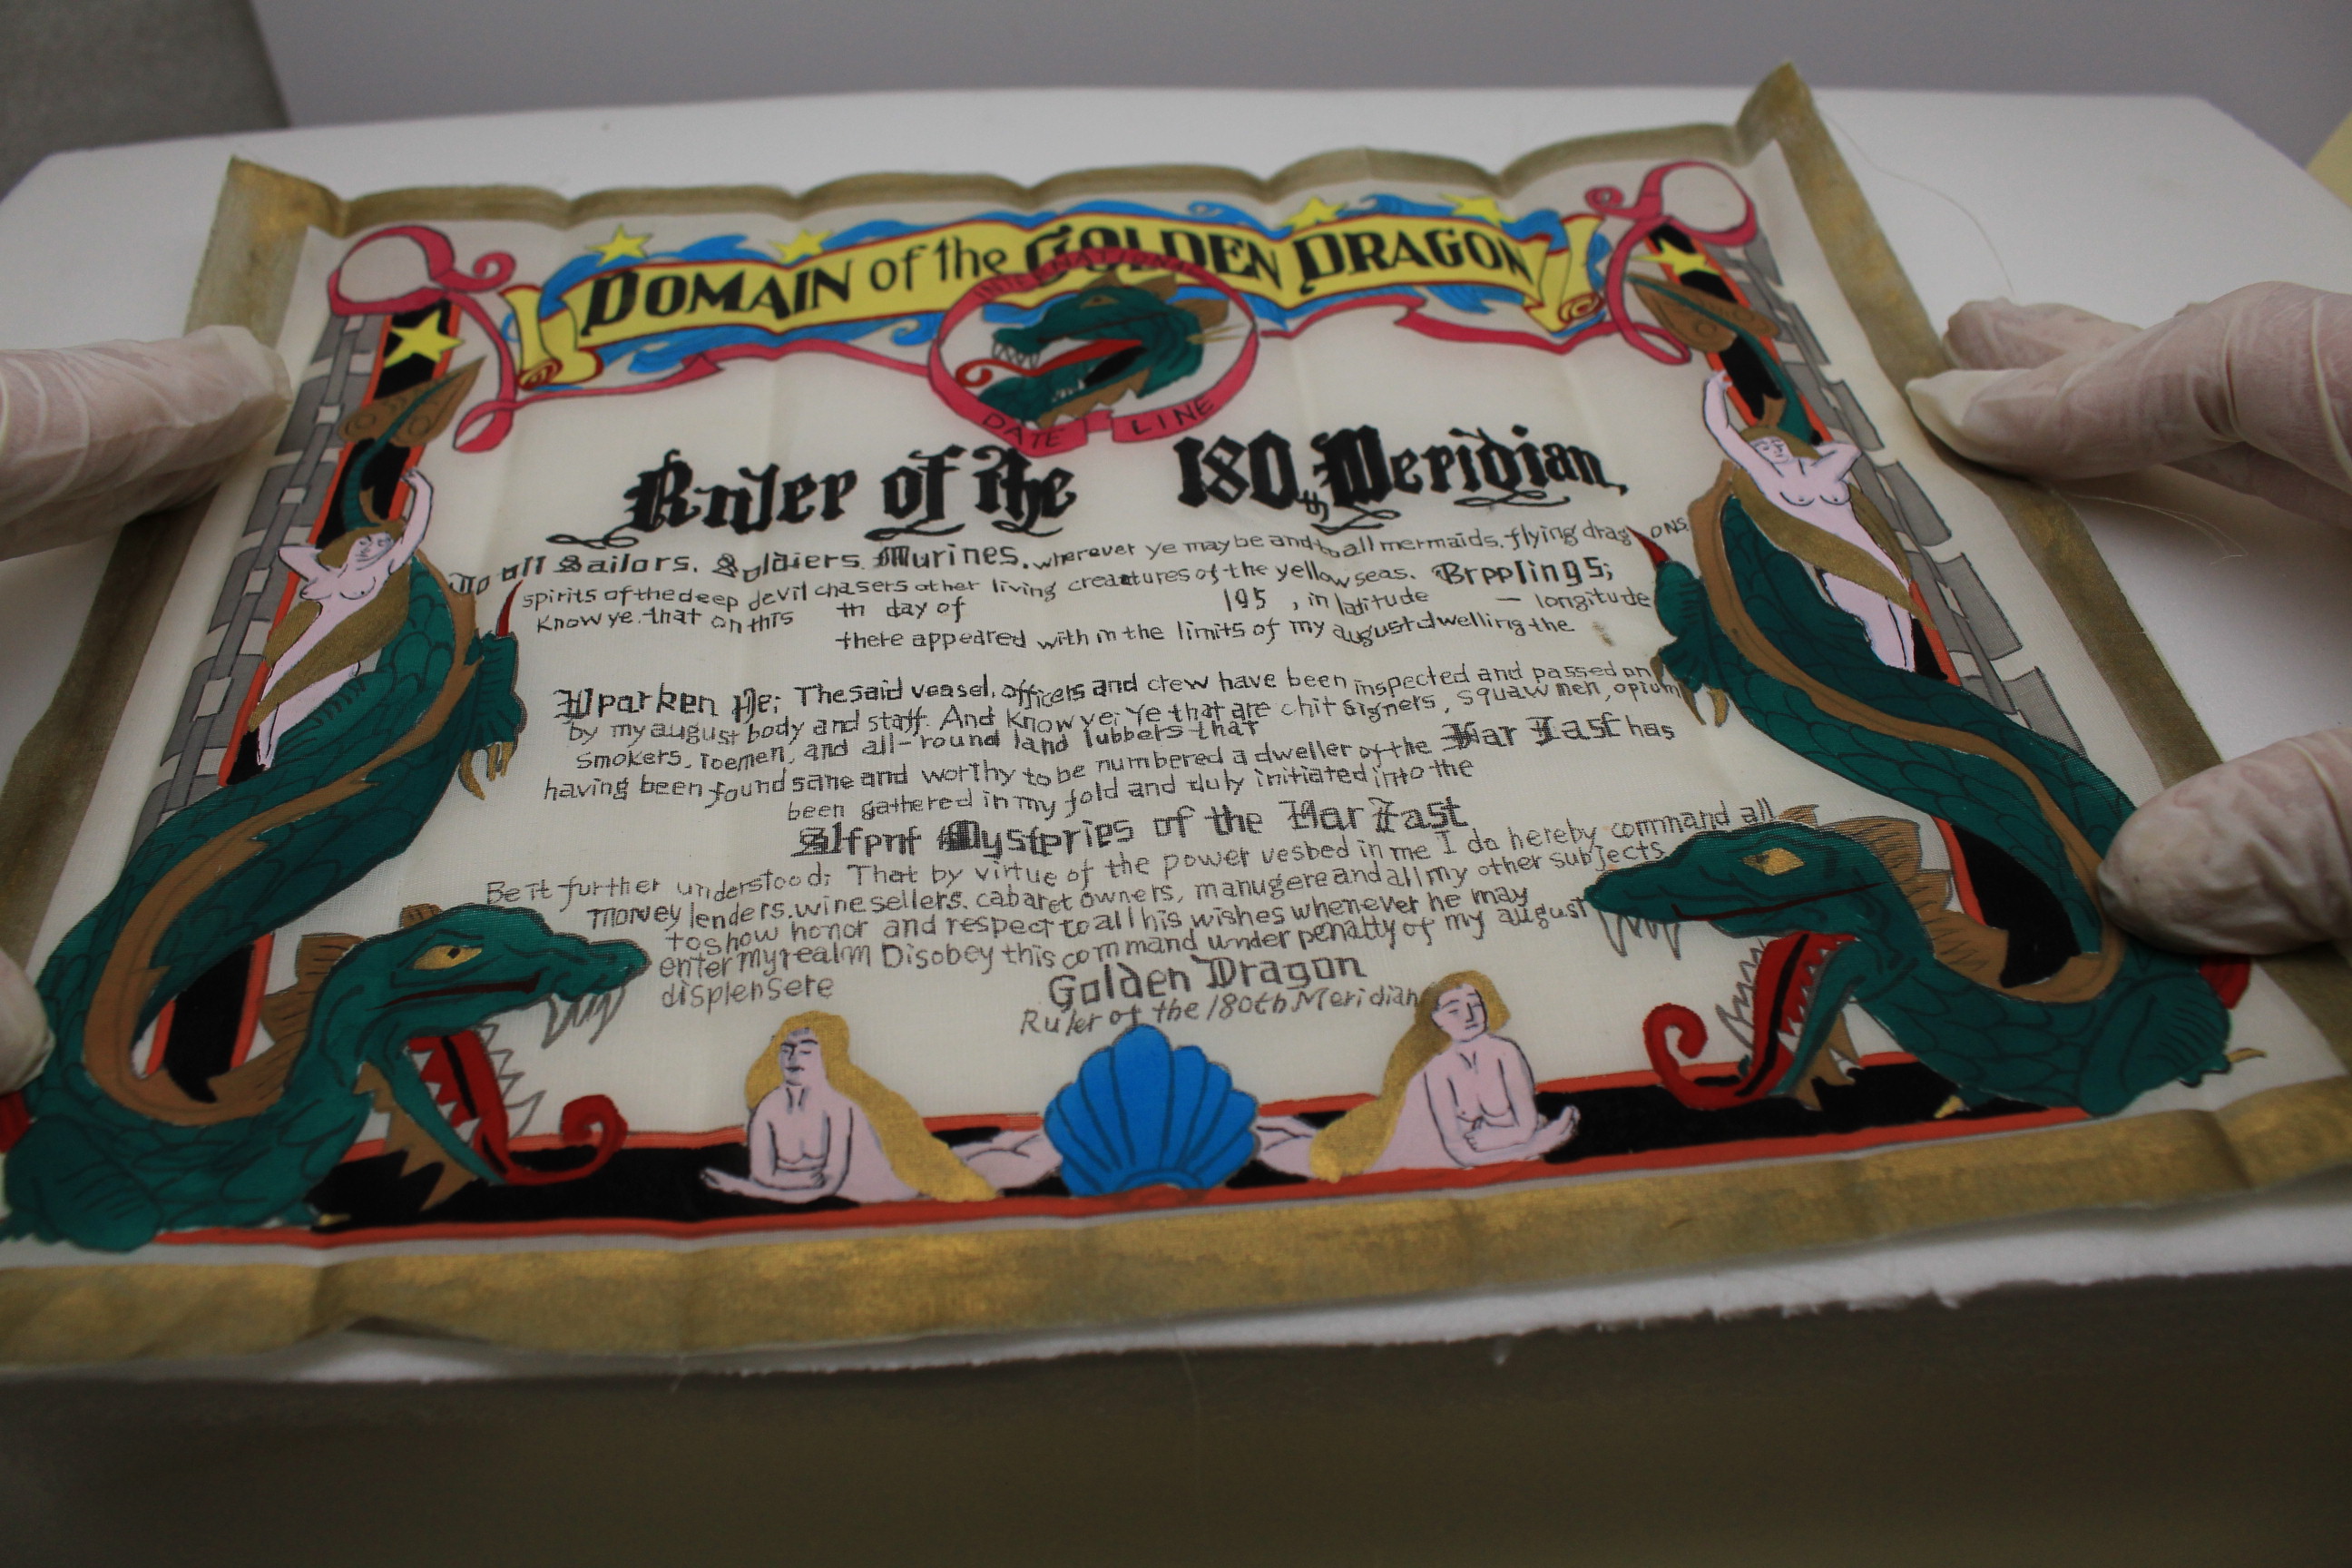 DOMAIN of the GOLDEN DRAGON
INTERNATIONAL
DATE LINE
Ruler of the 180th Meridian,
To all Sailors, Soldiers, Murines, wherever ye may be and to all mermaids, flying dragons.
spirits of the deep devil chasers other living creatures of the yellow seas. Brpplings;
Know ye. that on this th day of 195 , in latitude — longitude
there appeared with in the limits of my august dwelling the
Hparken Ye; The said veasel, officers and crew have been inspected and passed on
by my august body and staff. And Know ye: Ye that are chit signers, squaw men, opium
smokers, Icemen, and all-round land lubbers that
having been found sane and worthy to be numbered a dweller of the Far East has
been gathered in my fold and duly initiated into the
Silfpnt Mysteries of the Far East
Be it further understood; That by virtue of the power vesbed in me I do hereby command all
money lenders. wine sellers. cabaret owners, manugere and all my other subjects
to show honor and respect to all his wishes whenever he may
enter my realm Disobey this command under penalty of my august
displensere
Golden Dragon
Ruler of the 180th Meridian